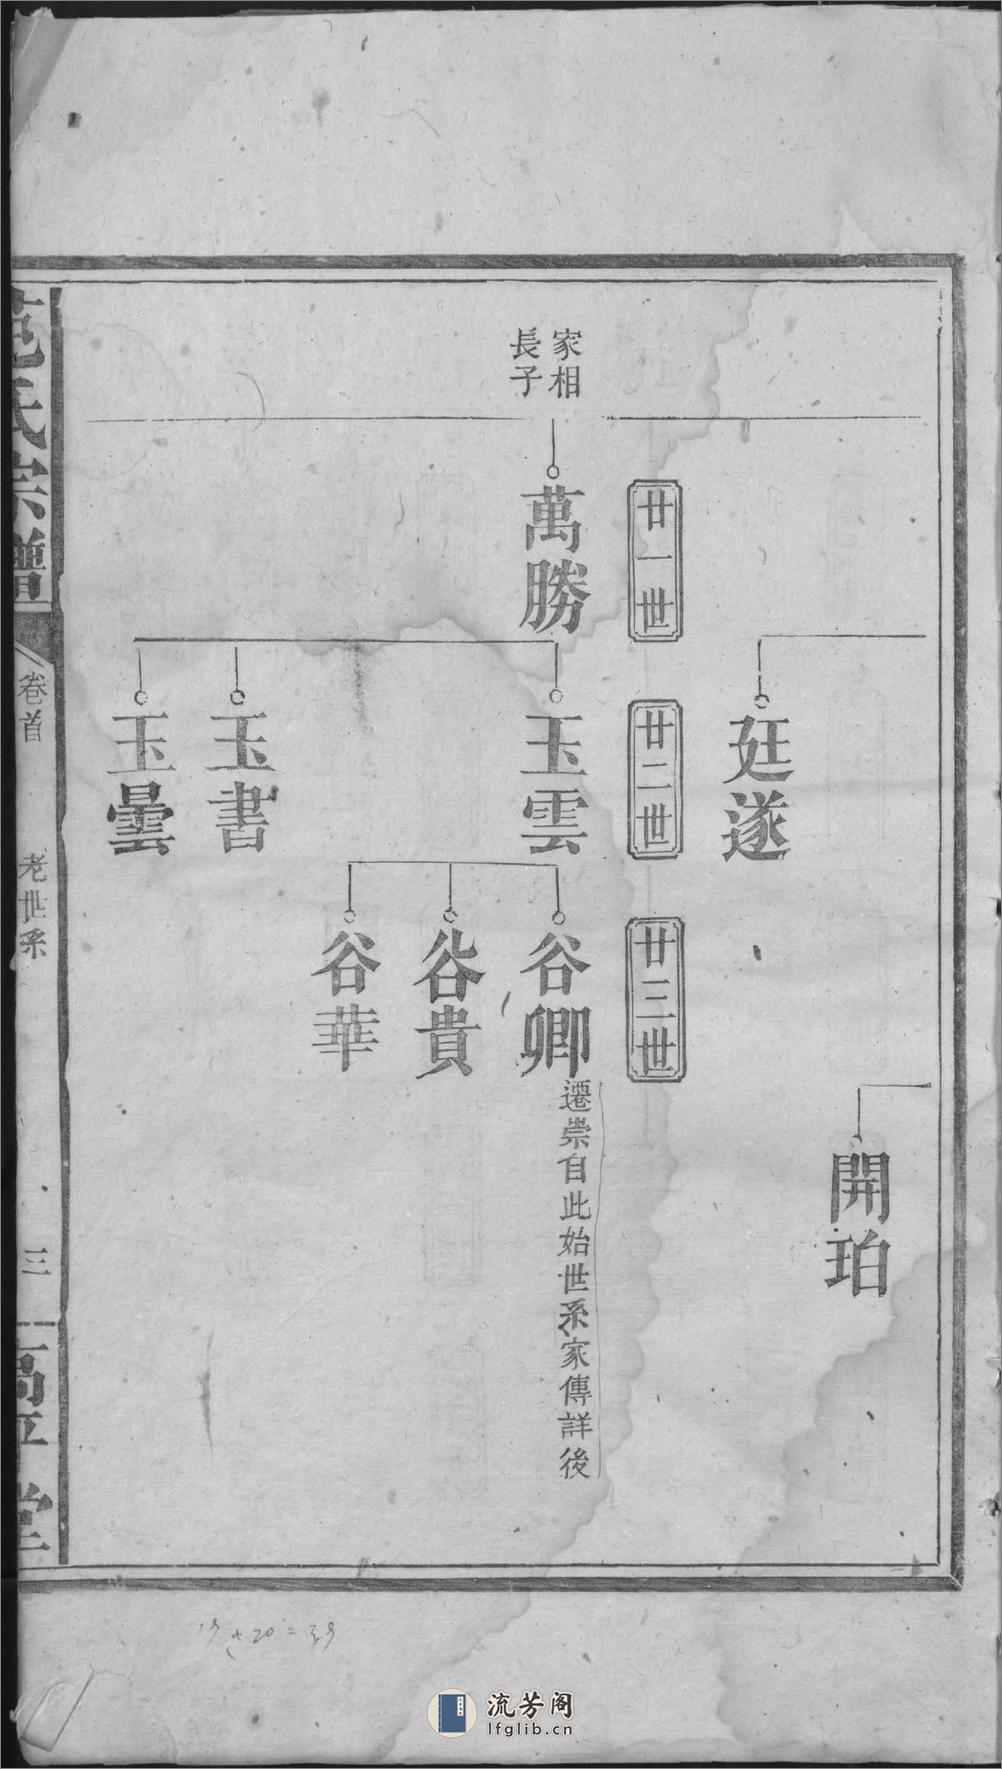 廷遂
開珀
廿一世
廿二世
廿三世
家相
長子
萬勝
玉雲
玉書
玉曇
谷卿
遷崇自此始世系家傳詳後
谷貴
谷華
范氏宗譜
卷首
老世系
三
高平堂
19+20=39
流芳阁
lfglib.cn